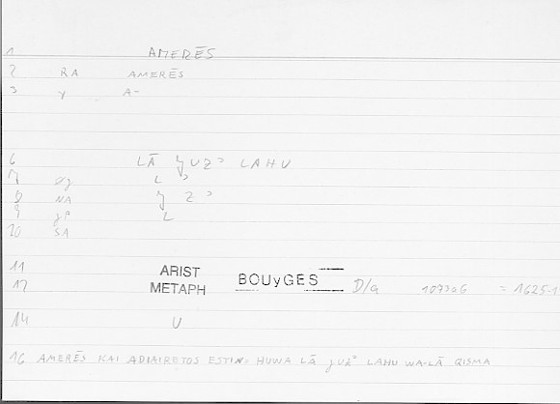 1 AMERĒS
2 RA AMERĒS
3 y A-
6 LĀ ǧUZʾ LAHU
7 L ʾ
8 NA ǧ Z ʾ
9 L
10 SA
11 ARIST
12 METAPH BOUyGES D/G = 1625.1
14 U
16 AMERĒS KAI ADIAIRETOS ESTIN: HUWA LĀ ǧUZʾ LAHU WA-LĀ QISMA